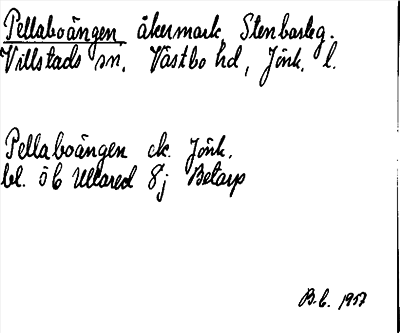 Pellaboängen, åkermark, Stenbarleg.
Villstads sn, Västbo hd, Jönk. l.
Pellaboängen ek. Jönk.
bl. öb Ullared 8j Betarp
B.E. 1957